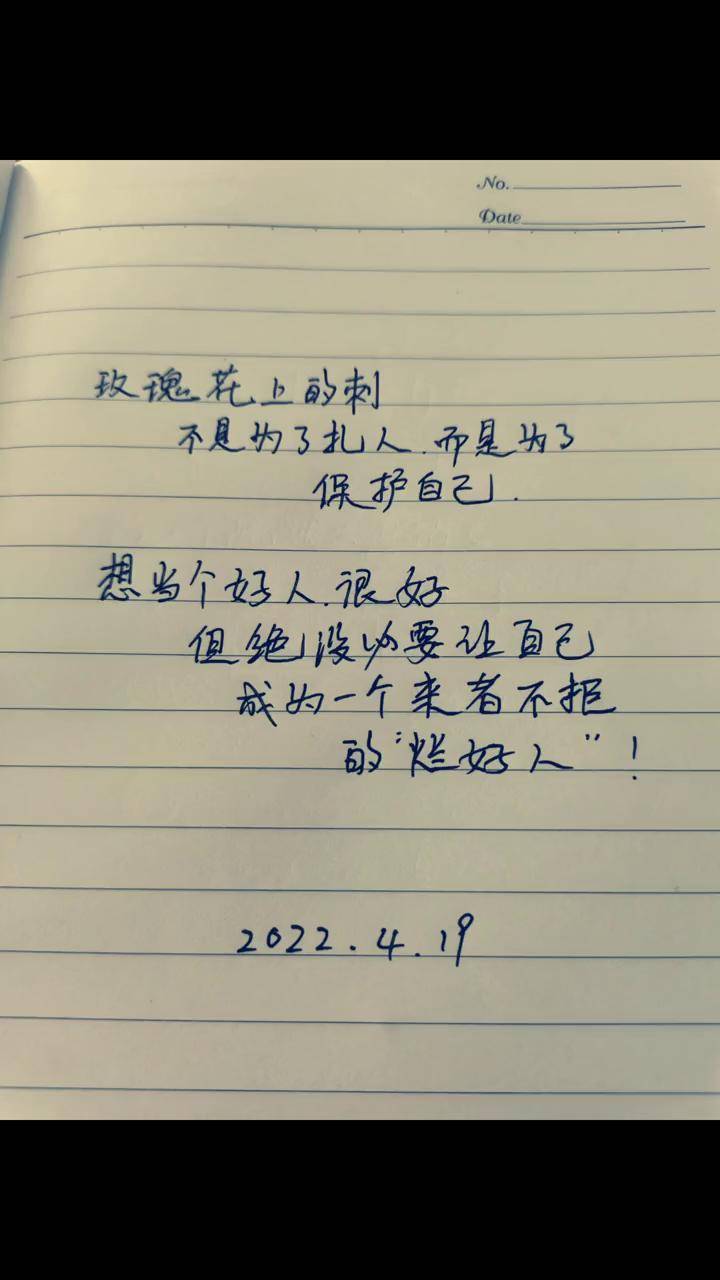 No.
Date
玫瑰花上的刺
不是为了扎人.而是为了
保护自己.
想当个好人.很好
但绝没必要让自己
成为一个来者不拒
的“烂好人”!
2022.4.19